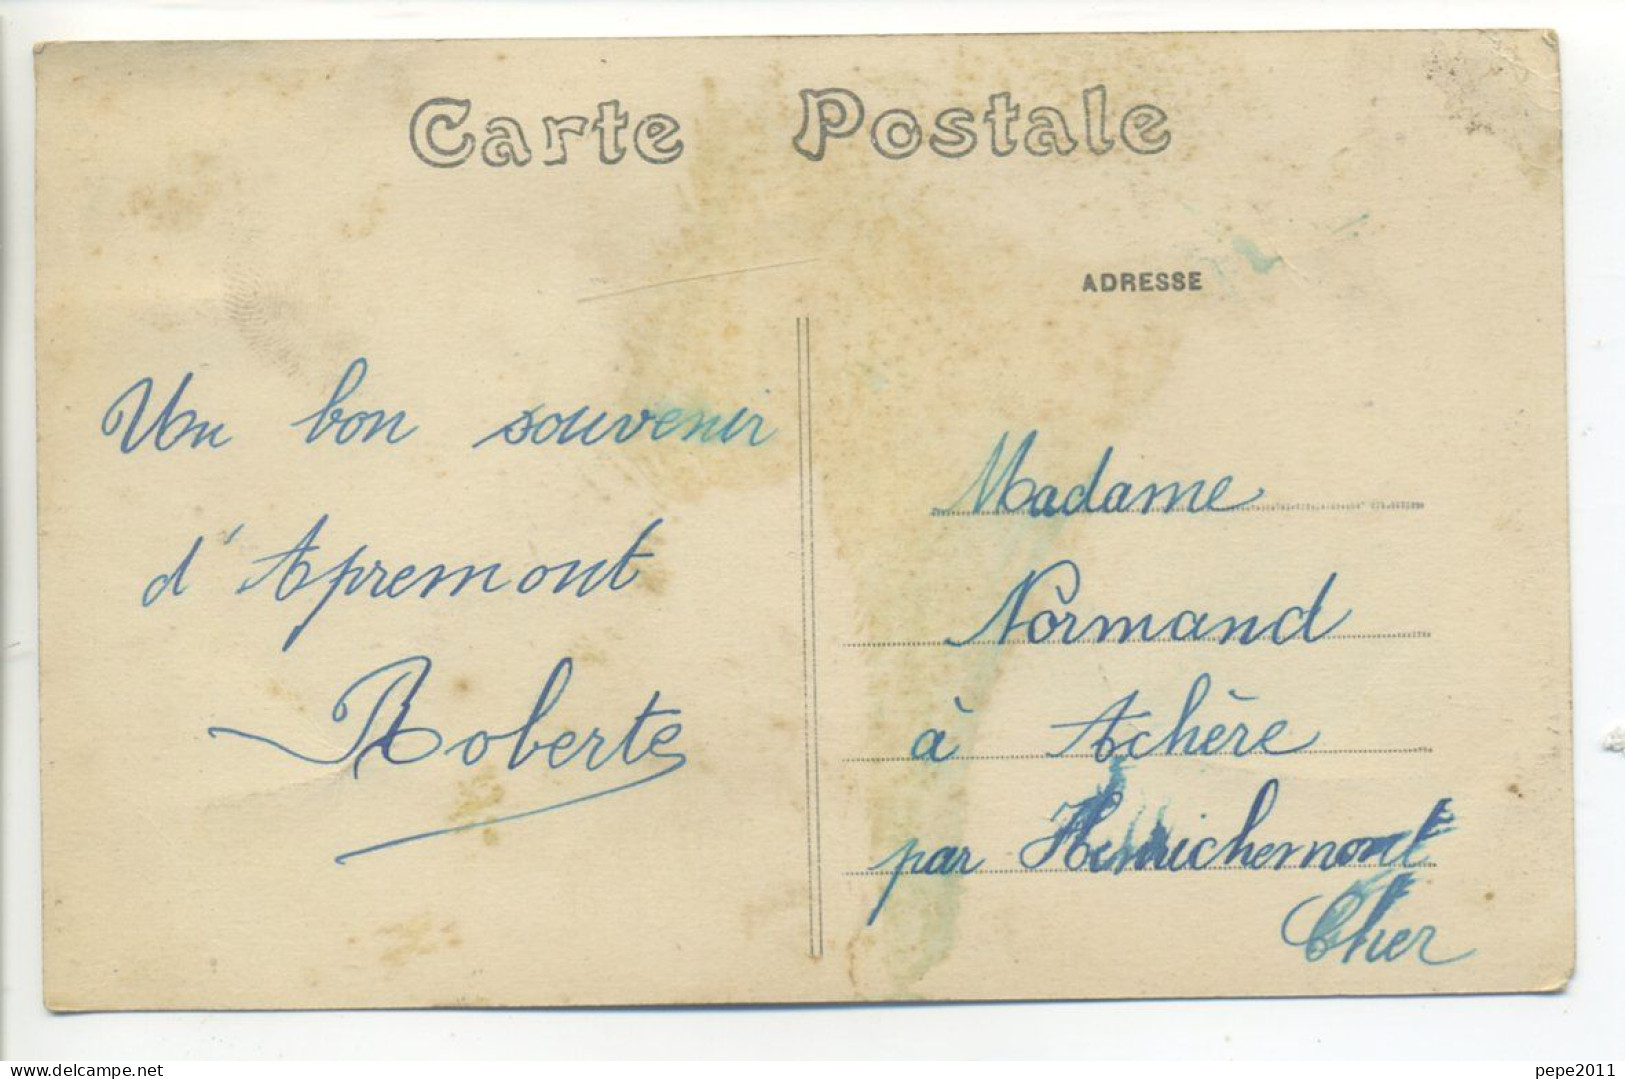 Carte Postale
ADRESSE
Un bon souvenir
d'Apremont
Roberte
Madame
Normand
à Achère
par Henrichemont
Cher
www.delcampe.net
pepe2011